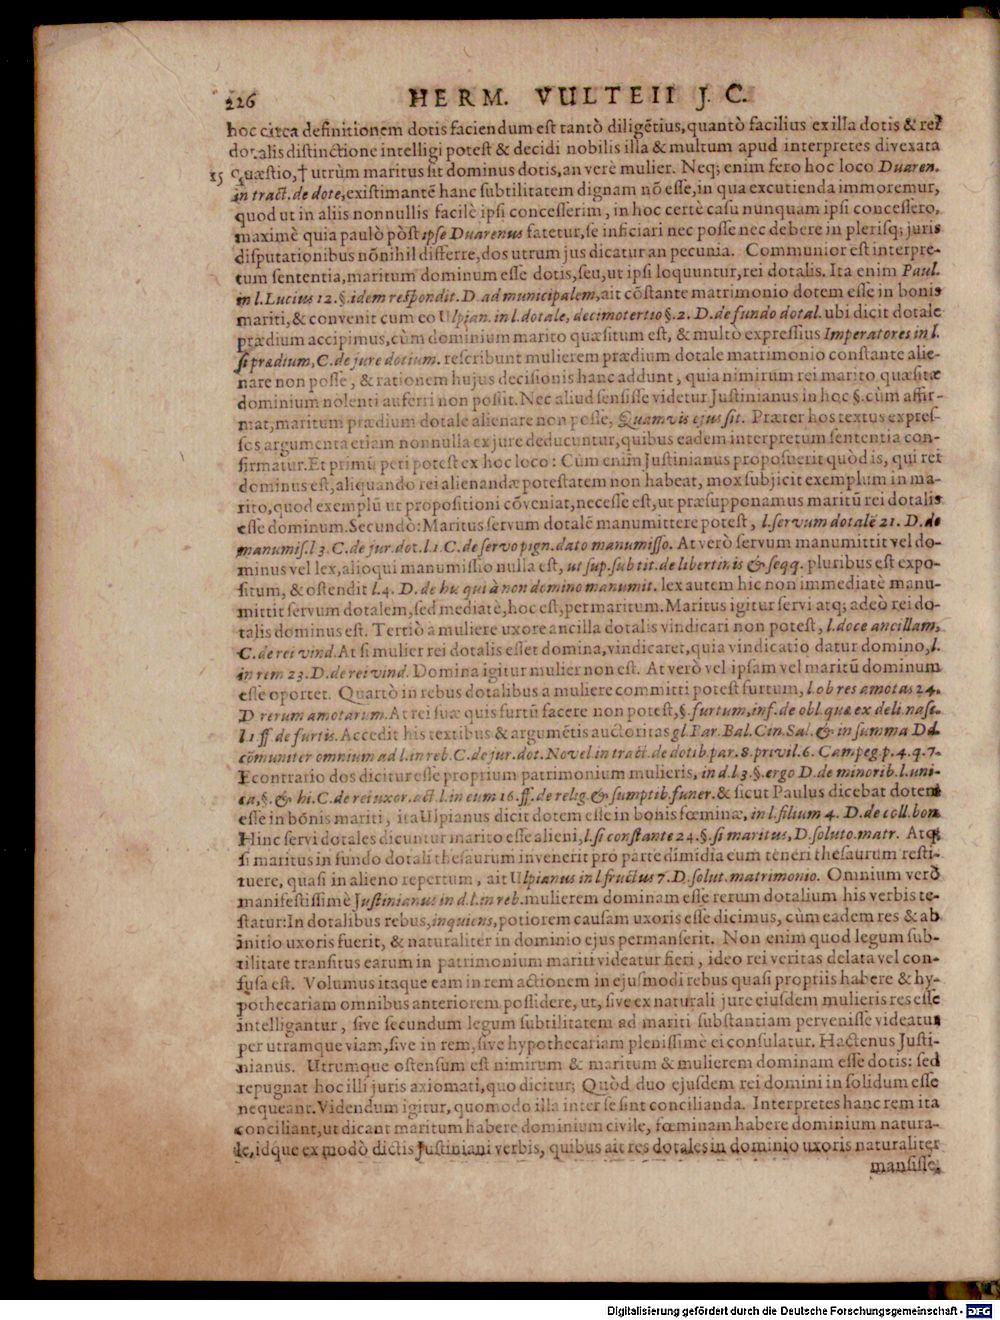 226 HERM. VULTEII J. C.
hoc circa definitionem dotis faciendum est tantò diligẽtius, quantò facilius ex illa dotis & rei
dotalis distinctione intelligi potest & decidi nobilis illa & multum apud interpretes divexata
15 Quæstio, † utrùm maritus sit dominus dotis, an verè mulier. Neq; enim fero hoc loco Duaren.
in tract. de dote, existimantẽ hanc subtilitatem dignam nõ esse, in qua excutienda immoremur,
quod ut in aliis nonnullis facilè ipsi concesserim, in hoc certè casu nunquam ipsi concessero,
maximè quia paulò pòst ipse Duarenus fatetur, se inficiari nec posse nec debere in plerisq; juris
disputationibus nõnihil differre, dos utrum jus dicatur an pecunia. Communior est interpre-
tum sententia, maritum dominum esse dotis, seu, ut ipsi loquuntur, rei dotalis. Ita enim Paul.
in l. Lucius 12. §. idem respondit. D. ad municipalem, ait cõstante matrimonio dotem esse in bonis
mariti, & convenit cum eo Ulpian. in l. dotale, decimotertio §. 2. D. de fundo dotal. ubi dicit dotale
prædium accipimus, cùm dominium marito quæsitum est, & multò expressius Imperatores in l.
si prædium, C. de jure dotium. rescribunt mulierem prædium dotale matrimonio constante alie-
nare non posse, & rationem hujus decisionis hanc addunt, quia nimirum rei marito quæsitæ
dominium nolenti auferri non possit. Nec aliud sensisse videtur Justinianus in hoc §. cùm affir-
mat, maritum prædium dotale alienare non posse, Quamvis ejus sit. Præter hos textus expres-
sos argumenta etiam nonnulla ex jure deducuntur, quibus eadem interpretum sententia con-
firmatur. Et primũ peti potest ex hoc loco: Cùm enim Justinianus proposuerit quòd is, qui rei
dominus est, aliquando rei alienandæ potestatem non habeat, mox subjicit exemplum in ma-
rito, quod exemplũ ut propositioni cõveniat, necesse est, ut præsupponamus maritũ rei dotalis
esse dominum. Secundò: Maritus servum dotalẽ manumittere potest, l. servum dotalẽ 21. D. de
manumis. l 3. C. de jur. dot. l. 1. C. de servo pign. dato manumisso. At verò servum manumittit vel do-
minus vel lex, alioqui manumissio nulla est, ut sup. sub tit. de libertinis & seqq. pluribus est expo-
situm, & ostendit l. 4. D. de hu. qui à non domino manumit. lex autem hic non immediatè manu-
mittit servum dotalem, sed mediatè, hoc est, per maritum. Maritus igitur servi atq; adeò rei do-
talis dominus est. Tertiò a muliere uxore ancilla dotalis vindicari non potest, l. doce ancillam,
C. de rei vind. At si mulier rei dotalis esset domina, vindicaret, quia vindicatio datur domino, l.
in rem 23. D. de rei vind. Domina igitur mulier non est. At verò vel ipsam vel maritũ dominum
esse oportet. Quartò in rebus dotalibus a muliere committi potest furtum, l. ob res amotas 24.
D rerum amotarum. At rei suæ quis furtũ facere non potest, §. furtum, inf. de obl. quæ ex deli. nasc.
l. 1. ff de furtis. Accedit his textibus & argumẽtis auctoritas gl. Par. Bal. Cin. Sal. & in summa Dd.
cõmuniter omnium ad l. in reb. C. de jur. dot. Novel in tract. de dotib. par. 8. privil. 6. Campeg. p. 4. q. 7.
E contrario dos dicitur esse proprium patrimonium mulieris, in d. l. 3 §. ergo D. de minorib. l. uni-
ca, §. & hi. C. de rei uxor. act. l. in eum 16. ff. de relig. & sumptib. funer. & sicut Paulus dicebat dotem
esse in bõnis mariti, ita Ulpianus dicit dotem esse in bonis fœminæ, in l. filium 4. D. de coll. bon.
Hinc servi dotales dicuntur marito esse alieni, l. si constante 24. §. si maritus, D. soluto. matr. Atq;
si maritus in fundo dotali thesaurum invenerit pro parte dimidia eum teneri thesaurum resti-
tuere, quasi in alieno repertum, ait Ulpianus in l. fructus 7. D. solut. matrimonio. Omnium verò
manifestissimè Justinianus in d. l. in reb. mulierem dominam esse rerum dotalium his verbis te-
statur: In dotalibus rebus, inquiens, potiorem causam uxoris esse dicimus, cùm eadem res & ab
initio uxoris fuerit, & naturaliter in dominio ejus permanserit. Non enim quod legum sub-
tilitate transitus earum in patrimonium mariti videatur fieri, ideo rei veritas delata vel con-
fusa est. Volumus itaque eam in rem actionem in ejusmodi rebus quasi propriis habere & hy-
pothecariam omnibus anteriorem possidere, ut, sive ex naturali jure eiusdem mulieris res esse
intelligantur, sive secundum legum subtilitatem ad mariti substantiam pervenisse videatur
per utramque viam, sive in rem, sive hypothecariam plenissimè ei consulatur. Hactenus Justi-
nianus. Utrumque ostensum est nimirum & maritum & mulierem dominam esse dotis: sed
repugnat hoc illi juris axiomati, quo dicitur; Quòd duo ejusdem rei domini in solidum esse
nequeant. Videndum igitur, quomodo illa inter se sint concilianda. Interpretes hanc rem ita
conciliant, ut dicant maritum habere dominium civile, fœminam habere dominium natura-
le, idque ex modò dictis Justiniani verbis, quibus ait res dotales in dominio uxoris naturaliter
mansisse;
Digitalisierung gefördert durch die Deutsche Forschungsgemeinschaft - DFG